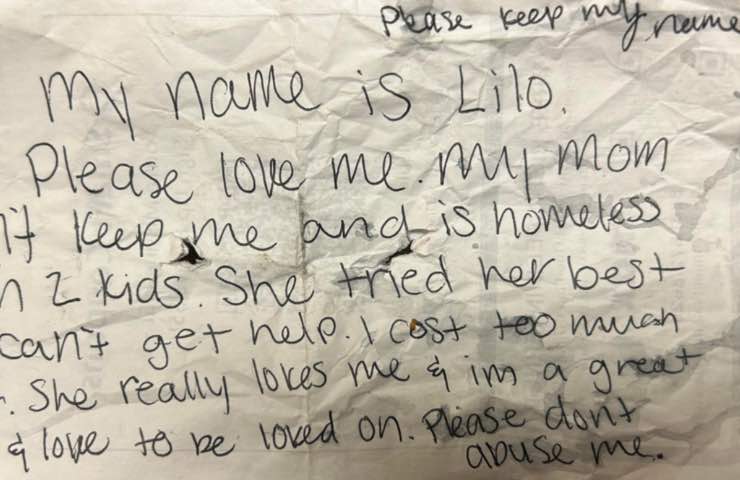 Please keep my name
My name is Lilo.
Please love me. My Mom
keep me and is homeless
2 kids. She tried her best
can't get help. I cost too much
She really loves me & im a great
& love to be loved on. Please dont
abuse me.